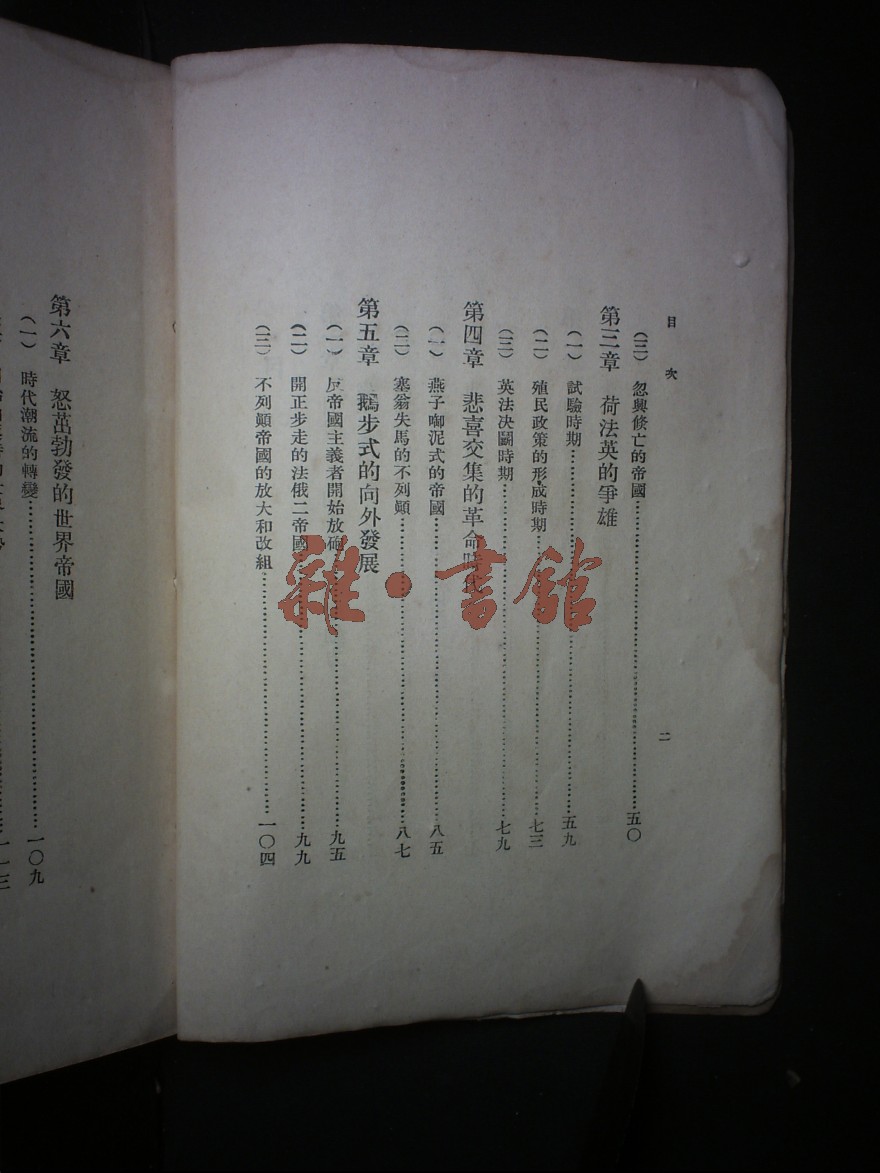 目次
二
(三) 忽興倏亡的帝國……五〇
第三章 荷法英的爭雄
(一) 試驗時期……五九
(二) 殖民政策的形成時期……七三
(三) 英法決鬭時期……七九
第四章 悲喜交集的革命時
(一) 燕子啣泥式的帝國……八五
(二) 塞翁失馬的不列顚……八七
第五章 鵝步式的向外發展
(一) 反帝國主義者開始放砲……九五
(二) 開正步走的法俄二帝國……九九
(三) 不列顚帝國的放大和改組……一〇四
第六章 怒茁勃發的世界帝國
(一) 時代潮流的轉變……一〇九
一一三
雜·書館